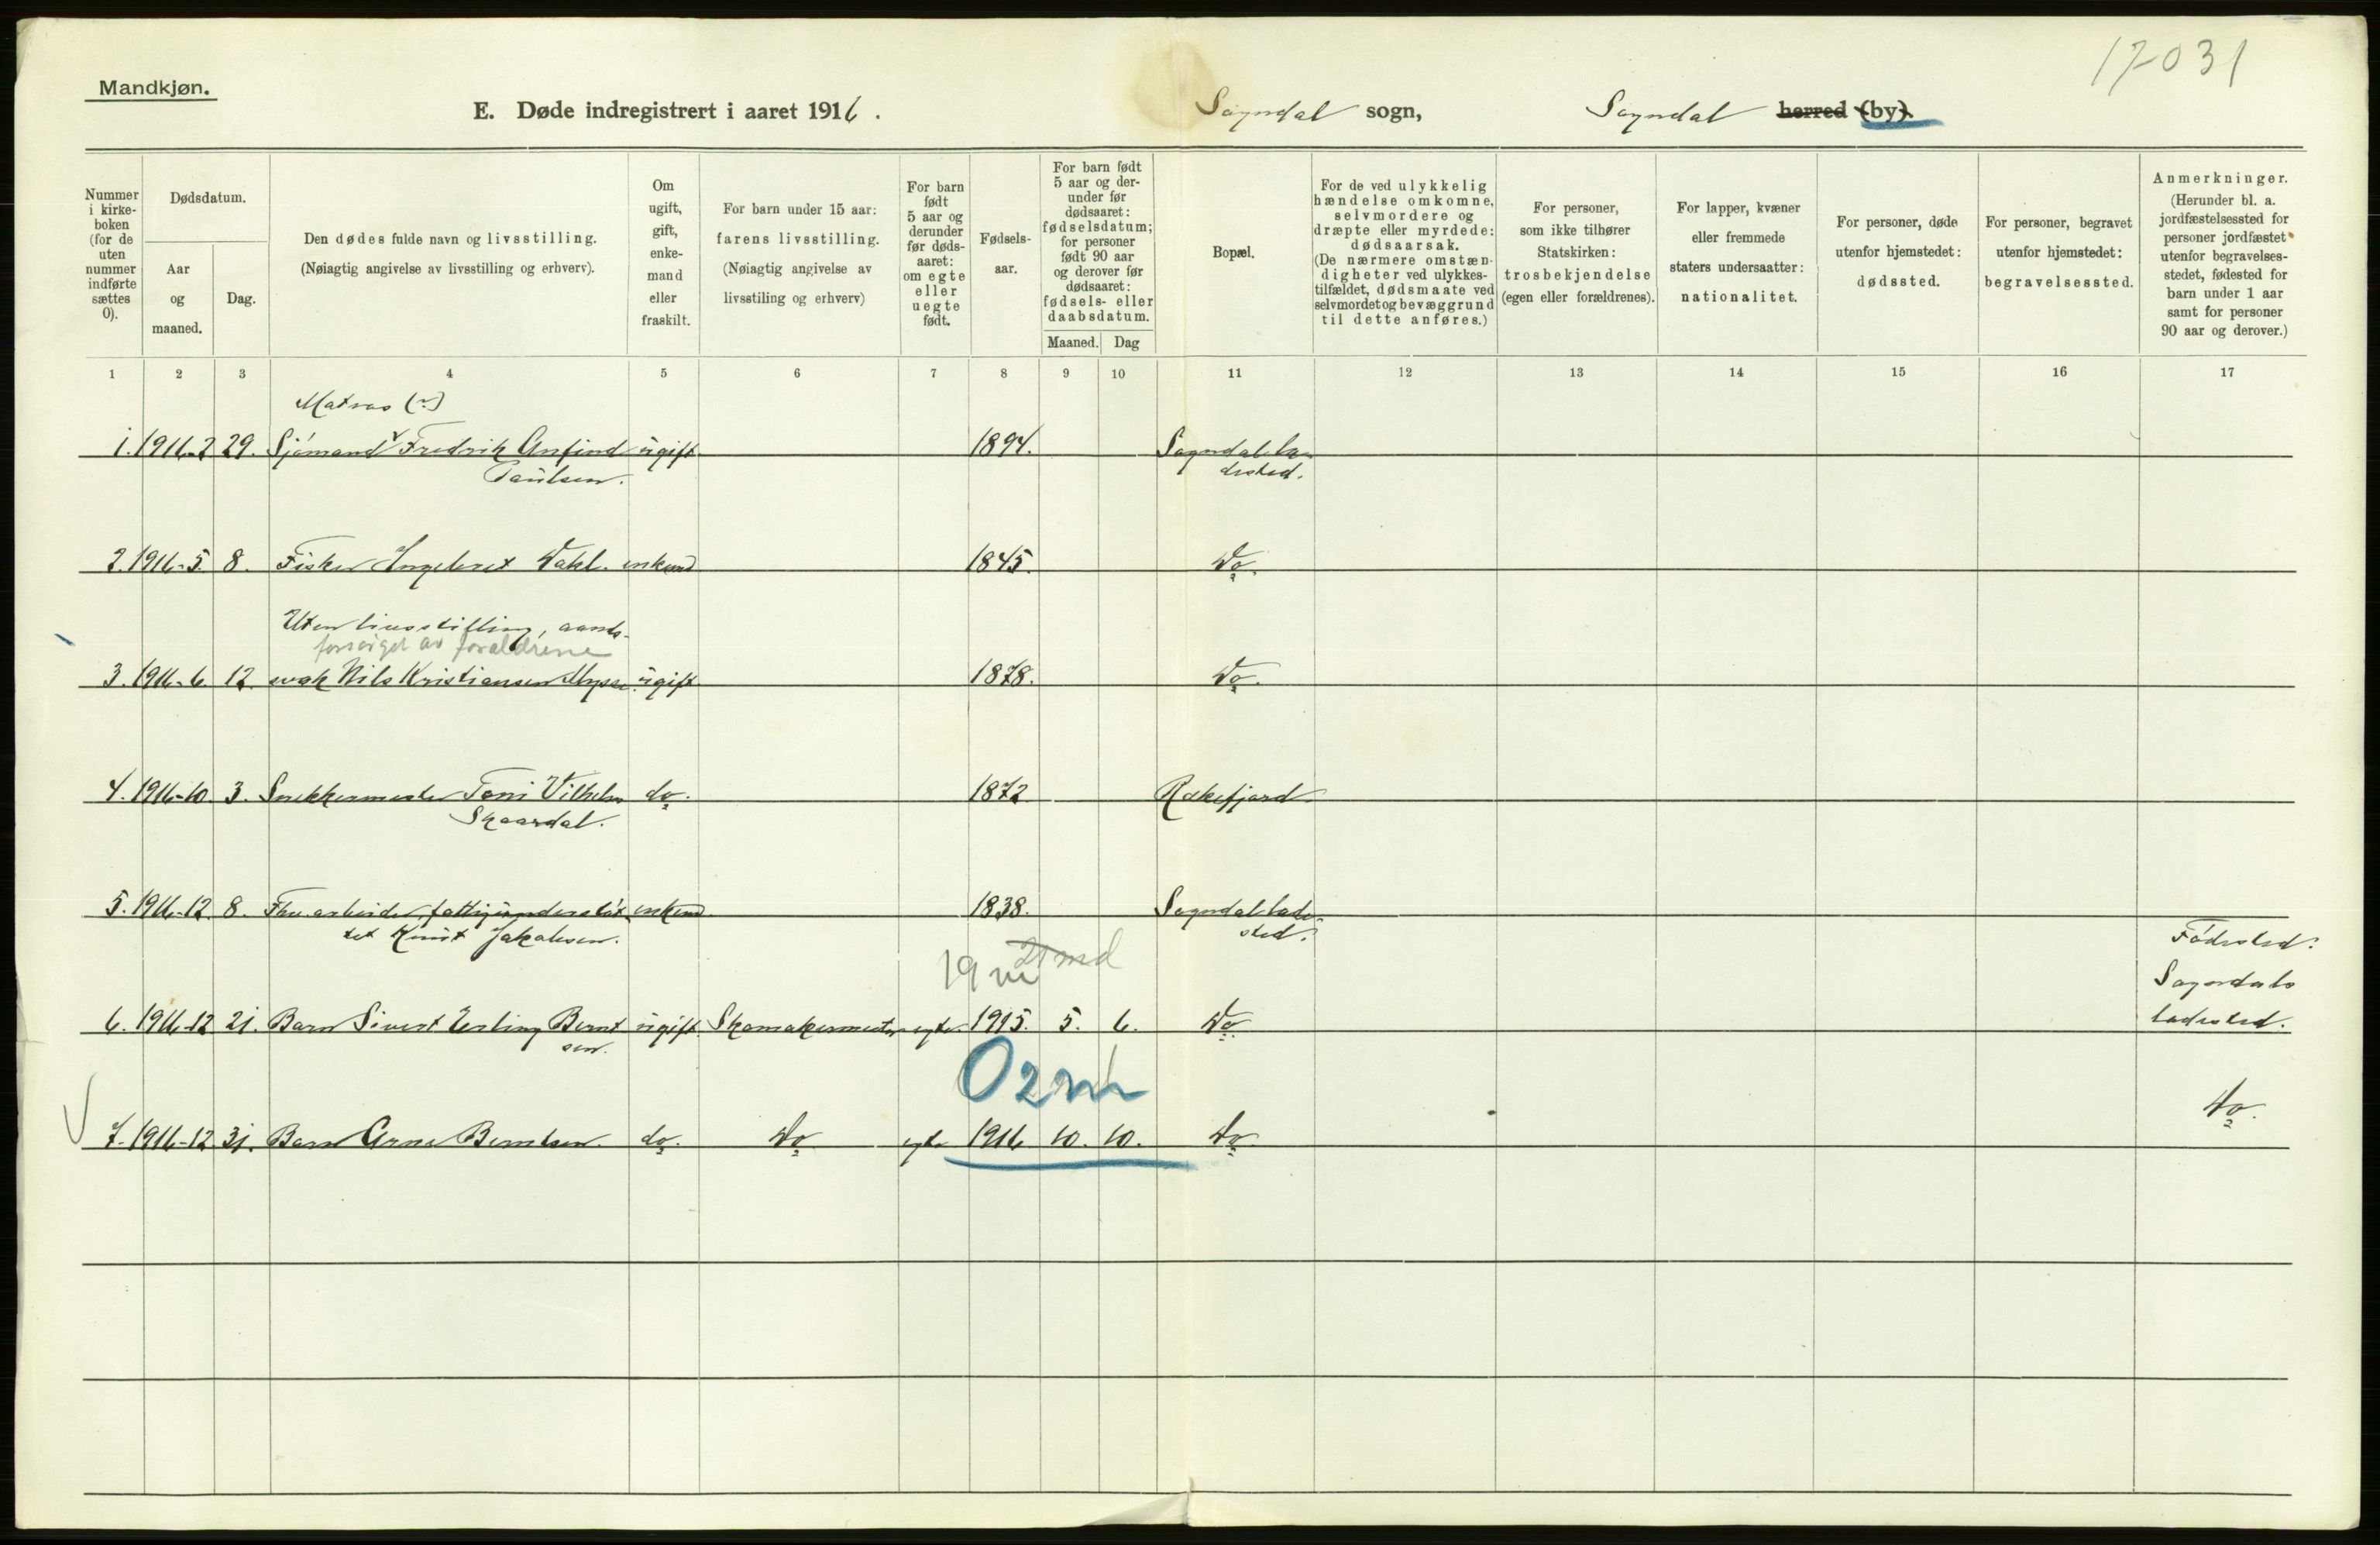 17031
Mandkjøn.
E. Døde indregistrert i aaret 1916. Sogndal sogn, Sogndal herred (by).
Nummer i kirke-boken (for de uten nummer indførte sættes 0).
Dødsdatum.
Aar og maaned.
Dag.
Den dødes fulde navn og livsstilling.
(Nøiagtig angivelse av livsstilling og erhverv).
Om ugift, gift, enke-mand eller fraskilt.
For barn under 15 aar:
farens livsstilling.
(Nøiagtig angivelse av livsstiling og erhverv)
For barn født 5 aar og derunder før døds-aaret: om egte eller uegte født.
Fødsels-aar.
For barn født 5 aar og der-under før dødsaaret: fødselsdatum; for personer født 90 aar og derover før dødsaaret: fødsels- eller daabsdatum.
Maaned. Dag
Bopæl.
For de ved ulykkelig hændelse omkomne, selvmordere og dræpte eller myrdede: dødsaarsak.
(De nærmere omstæn-digheter ved ulykkes-tilfældet, dødsmaate ved selvmordet og bevæggrund til dette anføres.)
For personer, som ikke tilhører Statskirken: trosbekjendelse (egen eller forældrenes).
For lapper, kvæner eller fremmede staters undersaatter: nationalitet.
For personer, døde utenfor hjemstedet: dødssted.
For personer, begravet utenfor hjemstedet: begravelsessted.
Anmerkninger.
(Herunder bl. a. jordfæstelsessted for personer jordfæstet utenfor begravelses-stedet, fødested for barn under 1 aar samt for personer 90 aar og derover.)
1 2 3 4 5 6 7 8 9 10 11 12 13 14 15 16 17
Matros (?)
1. 1916-2 29. Sjømand Fredrik Anfind ugift 1894. Sogndal la-
Paulsen. dested.
2. 1916-5. 8. Fisker Ingebret Dahl. enkem 1845. Do.
Uten livsstilling, aands-
forsørget av forældrene
3. 1916-6. 12. svak Nils Kristiansen ugift. 1878. Do.
4. 1916-10. 3. Snekkermester Toni Vilhelm do. 1872 Rækefjord
Skaardal.
5. 1916-12. 8. Fhv. arbeider, fattigunderstøt- enkem. 1838. Sogndal lade-
tet Knut Jakobsen. sted.
19 m 21 md
Fødested:
Sogndals
6. 1916-12 21. Barn Sivert Erling Bernt- ugift. Skomakermester egte 1915. 5. 6. Do. ladested.
sen.
02 m
7. 1916-12. 31. Barn Arne Berntsen. do. Do egte 1916 10. 10. Do. Do.